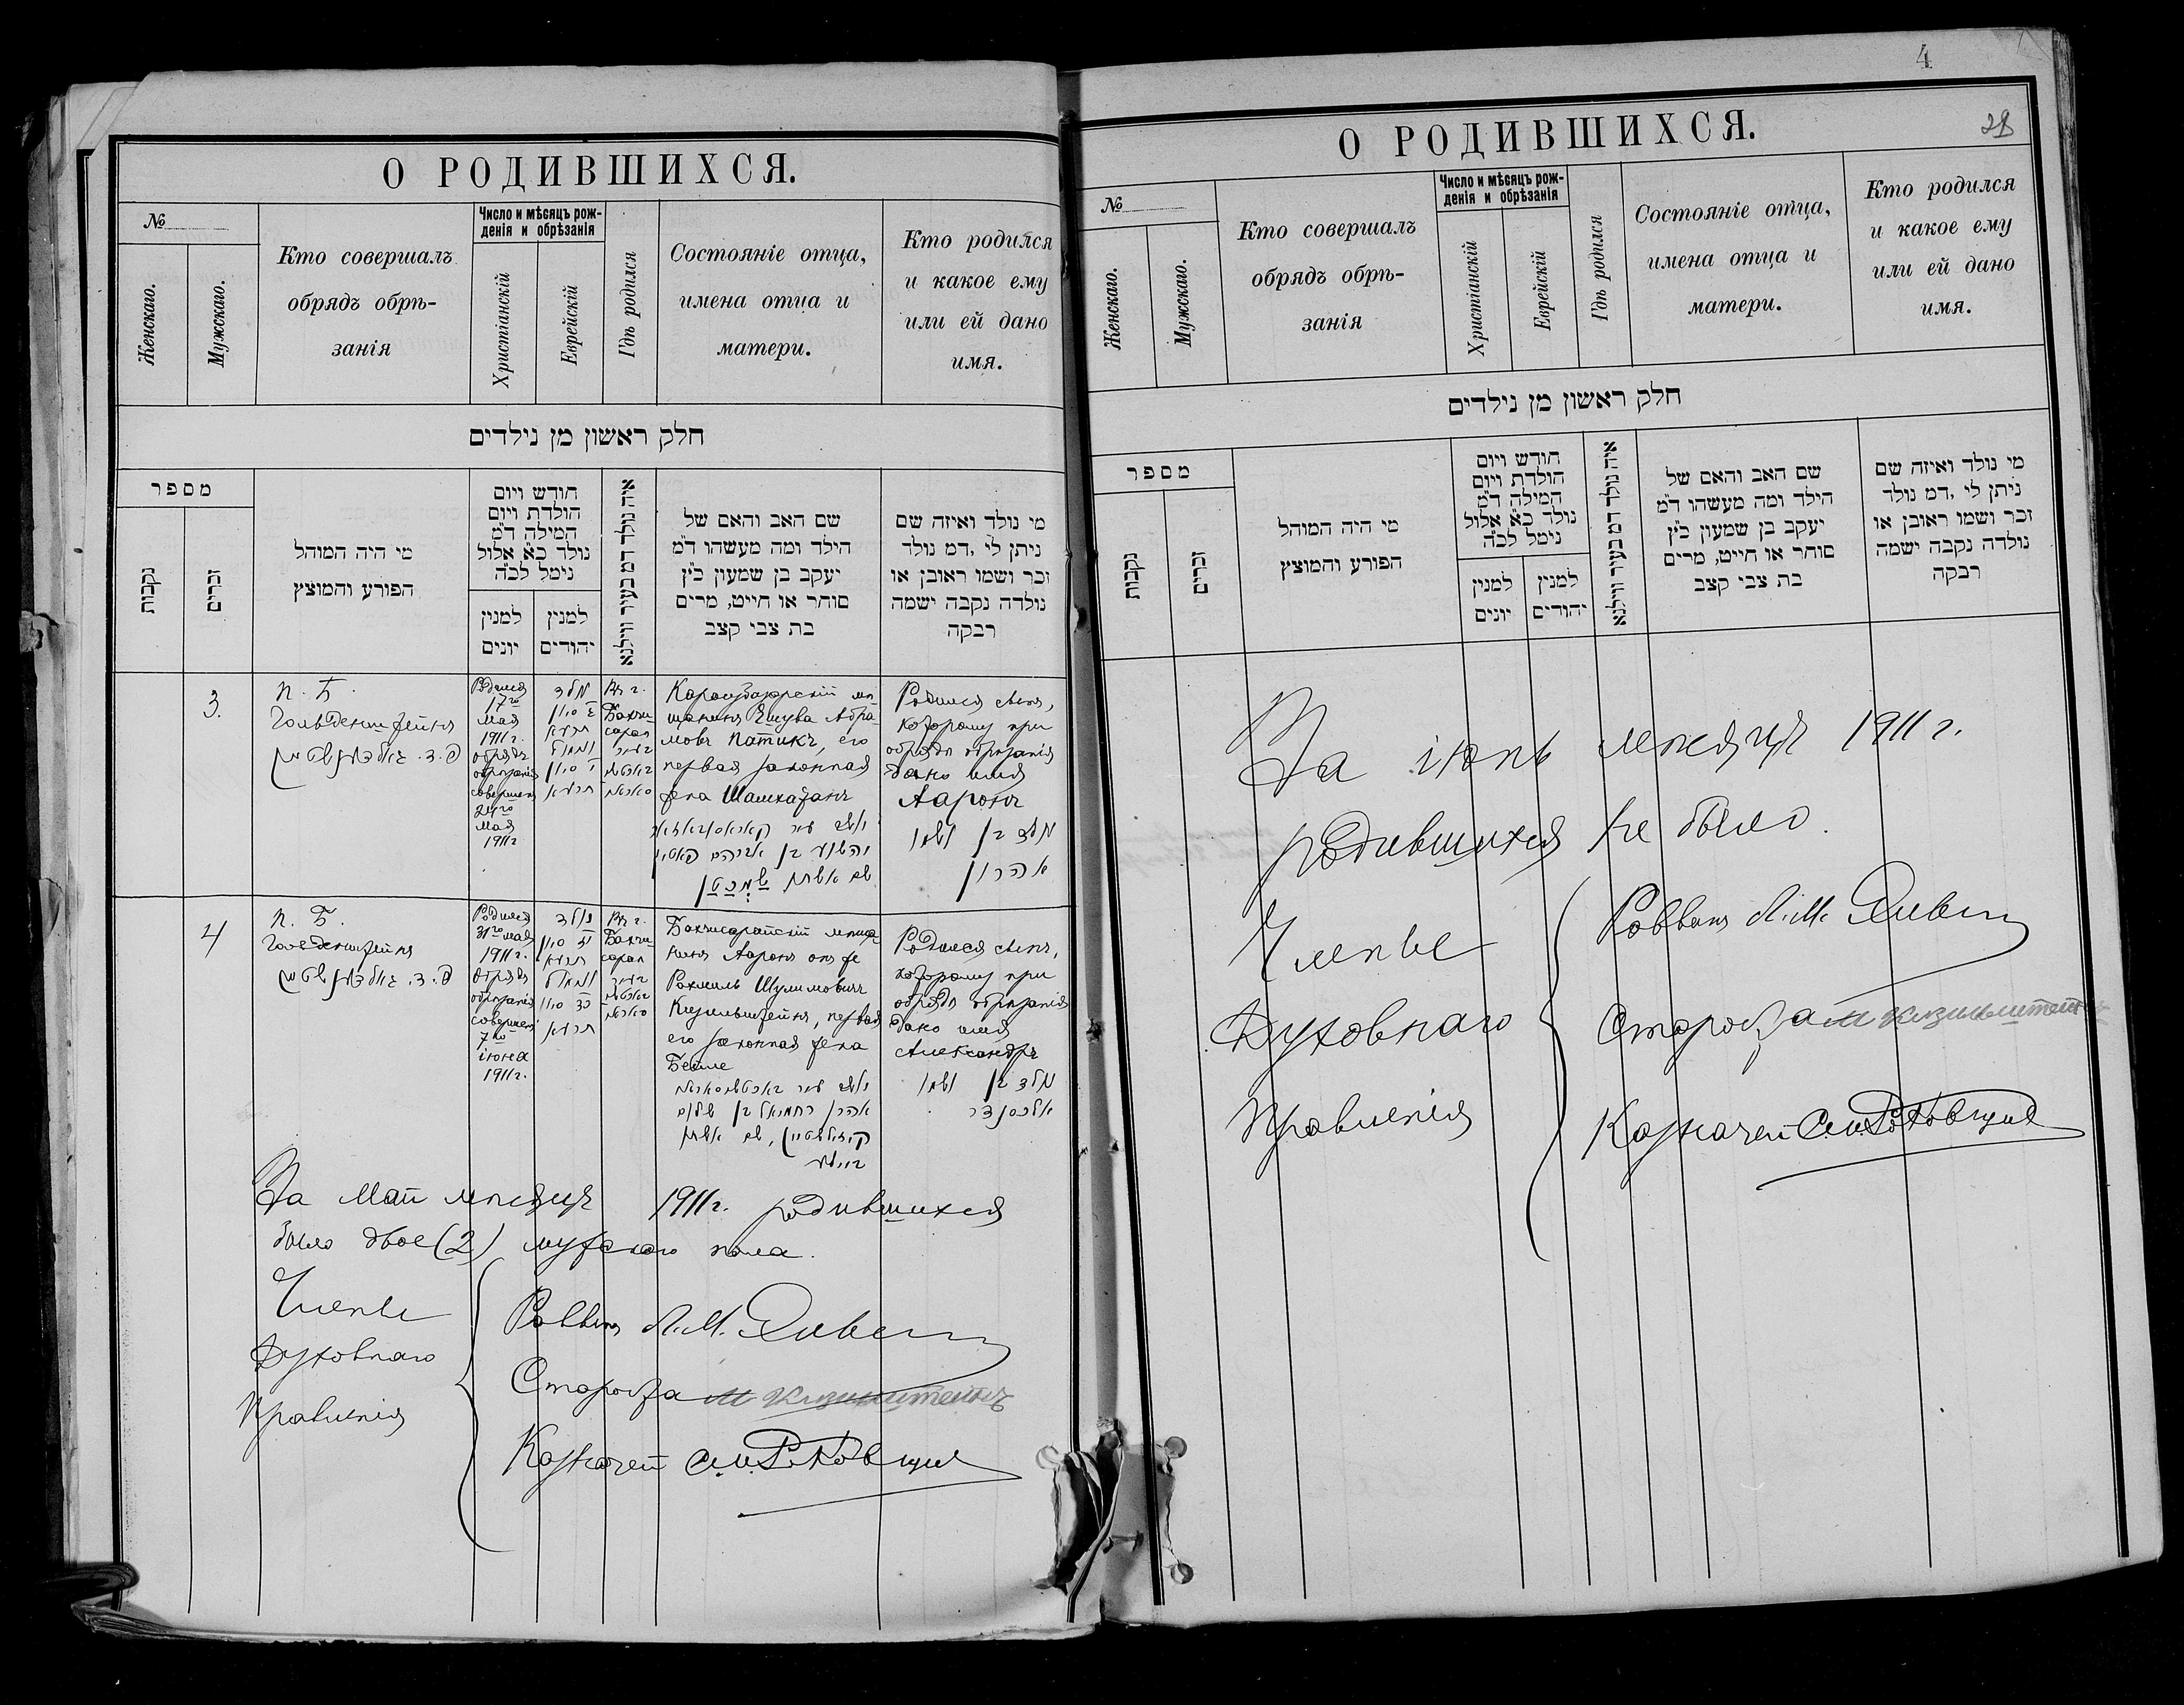 О РОДИВШИХСЯ.
№
Женскаго.
Мужскаго.
Кто совершалъ
обрядъ обрѣ-
занія
Число и мѣсяцъ рож-
денія и обрѣзанія
Христіанскій
Еврейскій
Гдѣ родился
Состояніе отца,
имена отца и
матери.
Кто родился
и какое ему
или ей дано
имя.
חלק ראשון מן נילדים
מספר
נקבות
זכרים
מי היה המוהל
הפורע והמוצץ
חודש ויום
הולדת ויום
המילה ד״מ
נולד כ״א אלול
נימל לכ״ה
למנין
יונים
למנין
יהודים
איה נולד דמ בעיר ווילנא
שם האב והאם של
הילד ומה מעשהו ד״מ
יעקב בן שמעון כ״ץ
סוחר או חייט, מרים
בת צבי קצב
מי נולד ואיזה שם
ניתן לי ,דמ נולד
זכר ושמו ראובן או
נולדה נקבה ישמה
רבקה
3.
П. Б.
Гольденштейнъ
פ. ד. גאלדענשטיין
Родился
17го
мая
1911г.
обрядъ
обрѣзанія
совершенъ
24го
мая
1911г
נולד
תרע״א
תרע״א
Въ г.
Бахчи-
сараѣ
Карасубазарскій мѣ-
щанинъ Ешува Абра-
мовъ Патикъ, его
первая законная
жена Шамхатанъ
יהשוע בן אברהם פאטיק
שם אשתו שמכטן
Родился сынъ,
которому при
обрядѣ обрѣзанія
дано имя
Ааронъ
נולד בן ושמו
אהרון
4
П. Б.
Гольденштейнъ
פ. ד. גאלדענשטיין
Родился
31го мая
1911г.
обрядъ
обрѣзанія
совершенъ
7го
іюня
1911г.
נולד
תרע״א
תרע״א
Въ г.
Бахчи-
сараѣ
Бахчисарайскій мѣща-
нинъ Ааронъ онъ же
Рахмиль Шулимовичъ
Кизильштейнъ, первая
его законная жена
Бейле
אהרן רחמיאל בן שלום
קיזילשטיין, שם אשתו
ביילע
Родился сынъ,
которому при
обрядѣ обрѣзанія
дано имя
Александръ
נולד בן ושמו
אלכסנדר
За Май мѣсяцъ 1911г. родившихся
было двое (2) мужскаго пола.
Члены
Духовнаго
Правленія
Раввинъ Л.М.
Староста М Кизильштейнъ
Казначей
4
28
О РОДИВШИХСЯ.
№
Женскаго.
Мужскаго.
Кто совершалъ
обрядъ обрѣ-
занія
Число и мѣсяцъ рож-
денія и обрѣзанія
Христіанскій
Еврейскій
Гдѣ родился
Состояніе отца,
имена отца и
матери.
Кто родился
и какое ему
или ей дано
имя.
חלק ראשון מן נילדים
מספר
נקבות
זכרים
מי היה המוהל
הפורע והמוצץ
חודש ויום
הולדת ויום
המילה ד״מ
נולד כ״א אלול
נימל לכ״ה
למנין
יונים
למנין
יהודים
איה נולד דמ בעיר ווילנא
שם האב והאם של
הילד ומה מעשהו ד״מ
יעקב בן שמעון כ״ץ
סוחר או חייט, מרים
בת צבי קצב
מי נולד ואיזה שם
ניתן לי ,דמ נולד
זכר ושמו ראובן או
נולדה נקבה ישמה
רבקה
За іюнь мѣсяцъ 1911г.
родившихся не было.
Члены
Духовнаго
Правленія
Раввинъ Л.М.
Староста М Кизильштейнъ
Казначей